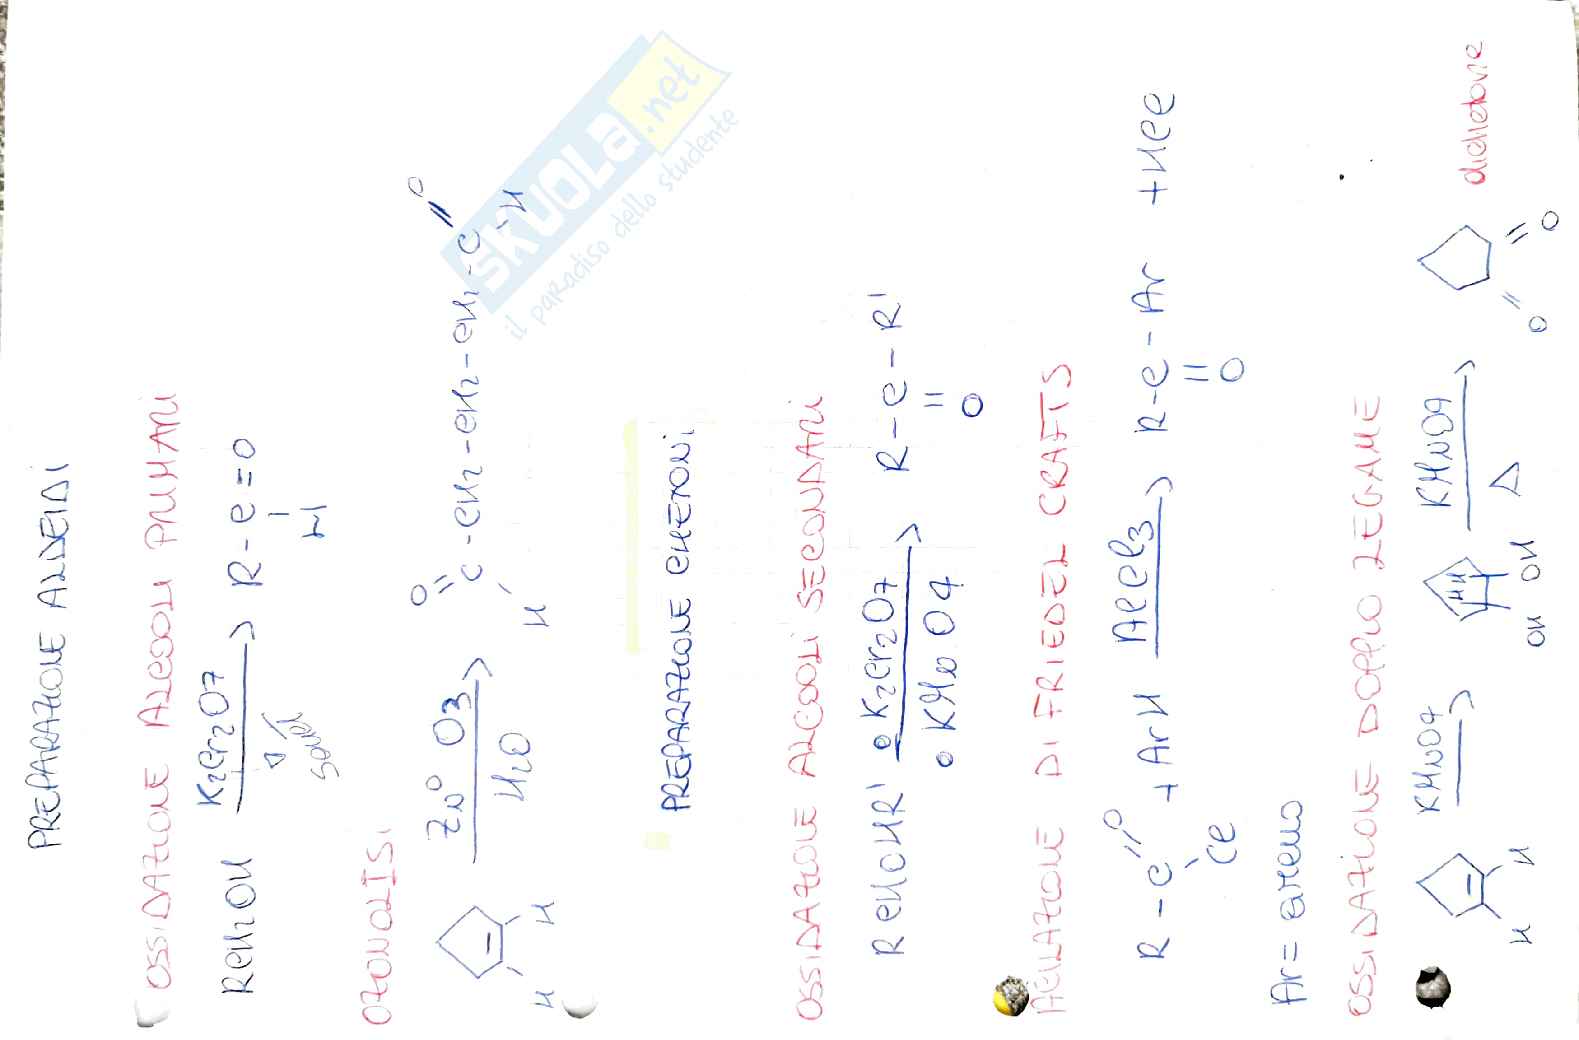 PREPARAZIONE ALDEIDI
OSSIDAZIONE ALCOOLI PRIMARI
RCH2OH K2Cr2O7 R-C=O
H
OZONOLISI
Zn° O3
H2O
H H
O C-CH2-CH2-CH2-C O
H H
PREPARAZIONE CHETONI
OSSIDAZIONE ALCOOLI SECONDARI
RCHOHR' • K2Cr2O7 R-C-R'
• KMnO4 O
ACILAZIONE DI FRIEDEL CRAFTS
R-C O + ArH AlCl3 R-C-Ar + HCl
Cl O
Ar= areno
OSSIDAZIONE DOPPIO LEGAME
KMnO4 H H KMnO4 dichetone
H H OH OH Δ O O
SKUOLA.net
il paradiso dello studente